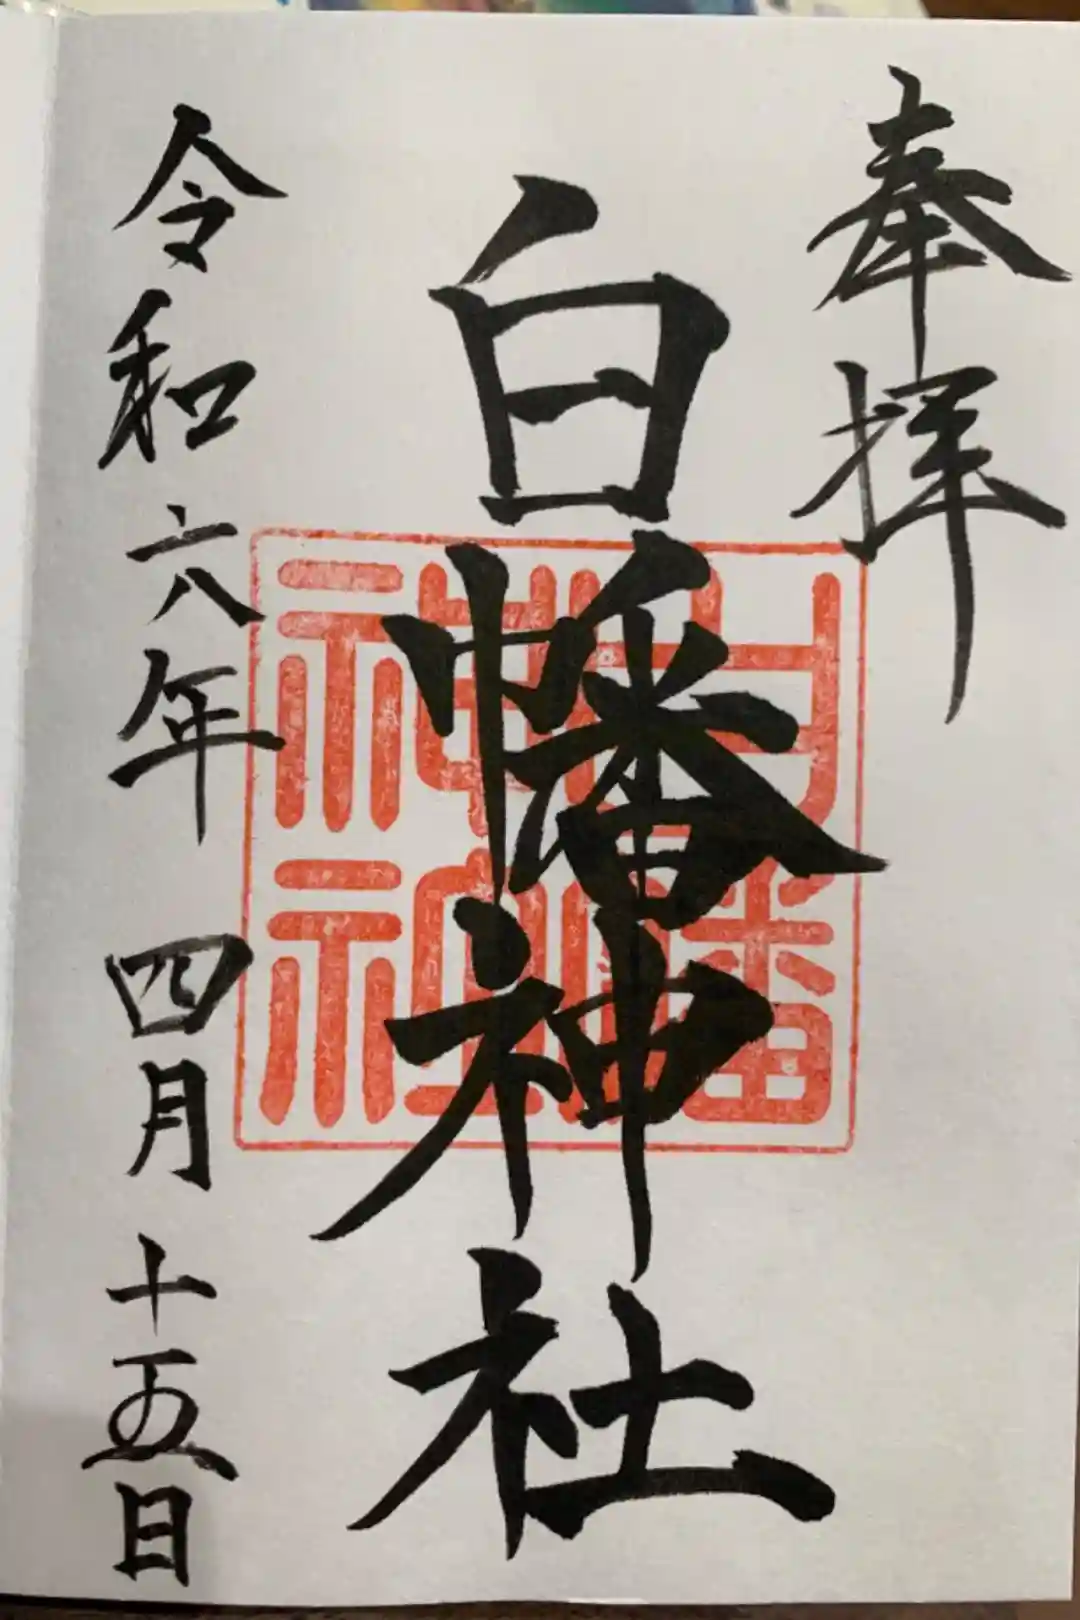 奉拝
白幡神社
白幡
神社
令和六年四月十五日